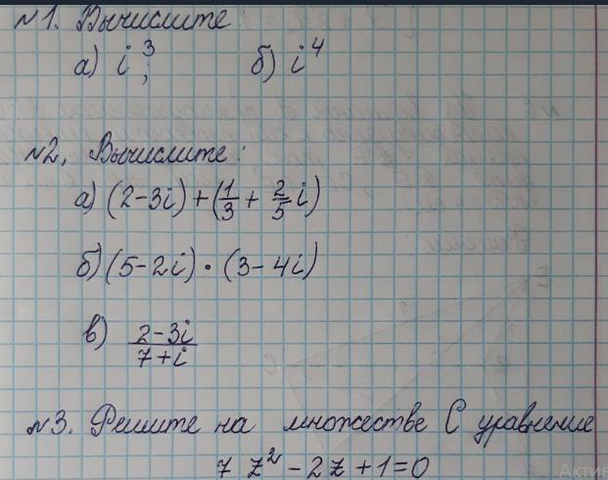 №1. Вычислите:
а) i³; б) i⁴
№2. Вычислите:
а) (2-3i)+(1/3 + 2/5 i)
б) (5-2i)·(3-4i)
в) 2-3i / 7+i
№3. Решите на множестве С уравнение
7 z² - 2z + 1 = 0
Актив